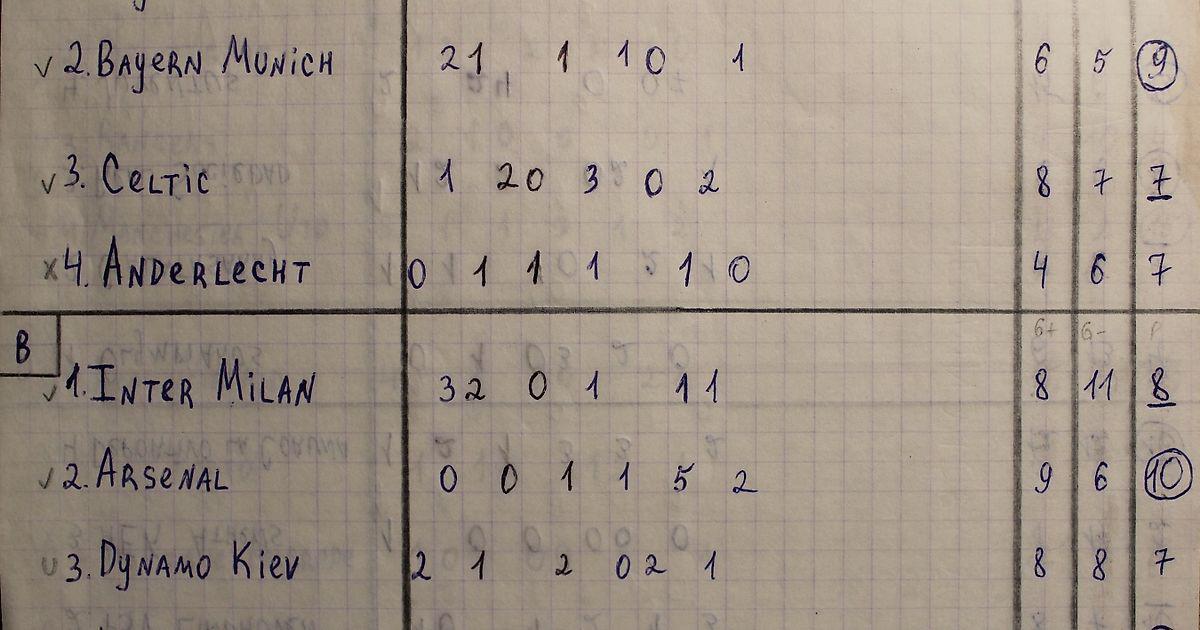 ✓ 2. BAYERN MUNICH 21 1 10 1 6 5 9
✓ 3. CELTIC 1 20 3 0 2 8 7 7
x 4. ANDERLECHT 0 1 1 1 1 0 4 6 7
B 6+ 6-
✓ 1. INTER MILAN 32 0 1 11 8 11 8
✓ 2. ARSENAL 0 0 1 1 5 2 9 6 10
3. DYNAMO KIEV 2 1 2 02 1 8 8 7